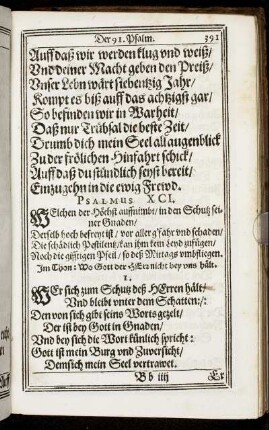 Der 91. Psalm. 391
Auff daß wir werden klug vnd weiß/
Vnd deiner Macht geben den Preiß/
Vnser Lebn wärt siebentzig Jahr/
Kompt es biß auff das achtzigst gar/
So befinden wir in Warheit/
Daß nur Trübsal die beste Zeit/
Drumb dich mein Seel all augenblick
Zu der frölichen Hinfahrt schick/
Auff daß du stündlich seyst bereit/
Einzugehn in die ewig Frewd.
PSALMUS XCI.
WElchen der Höchst auffnimbt/ in den Schutz sei-
ner Gnaden/
Derselb hoch befreyt ist/ vor aller gfahr vnd schaden/
Die schädlich Pestilentz/ kan ihm kein leyd zufügen/
Noch die gifftigen Pfeil/ so deß Mittags vmbfliegen.
Im Thon: Wo Gott der HErr nicht bey vns hält.
1.
WEr sich zum Schutz deß HErren hält/
Vnd bleibt vnter dem Schatten:/:
Den von sich gibt seins Worts gezelt/
Der ist bey Gott in Gnaden/
Vnd bey sich die Wort künlich spricht:
Gott ist mein Burg vnd Zuversicht/
Dem sich mein Seel vertrawet.
Bb iiij Er